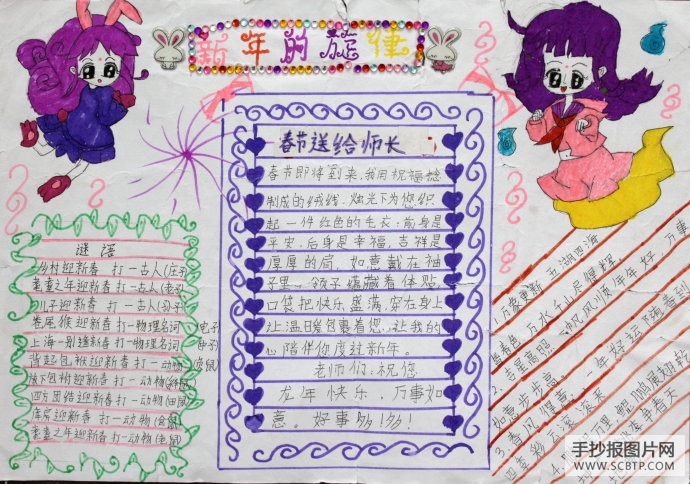 新年的旋律
春节送给师长
春节即将到来,我用祝福捻
制成的绒线,烛光下为您织
起一件红色的毛衣:前身是
平安,后身是幸福,吉祥是
厚厚的肩,如意戴在袖
子里,领子蕴藏着体贴,
口袋把快乐盛满,穿在身上
让温暖包裹着您,让我的
心陪伴你度过新年。
老师们:祝您
龙年快乐,万事如
意。好事多!多!
谜语
乡村迎新春 打一古人(庄子)
耄耋之年迎新春 打一古人(老子)
儿子迎新春 打一古人(孙子)
卷尾猴迎新春 打一物理名词(电子)
上海一别逢新春 打一物理名词(中子)
背起包袱迎新春 打一动物(袋鼠)
腋下包袱迎新春 打一动物
四方团结迎新春 打一动物(田鼠)
库房迎新春 打一动物(仓鼠)
耄耋之年迎新春 打一动物(老鼠)
1.万象更新 五湖四海
皆春色 万水千山尽便辉。
2.吉星高照 一年好运随春到
四季彩云滚滚来
手抄报图片网
WWW.SCBTP.COM